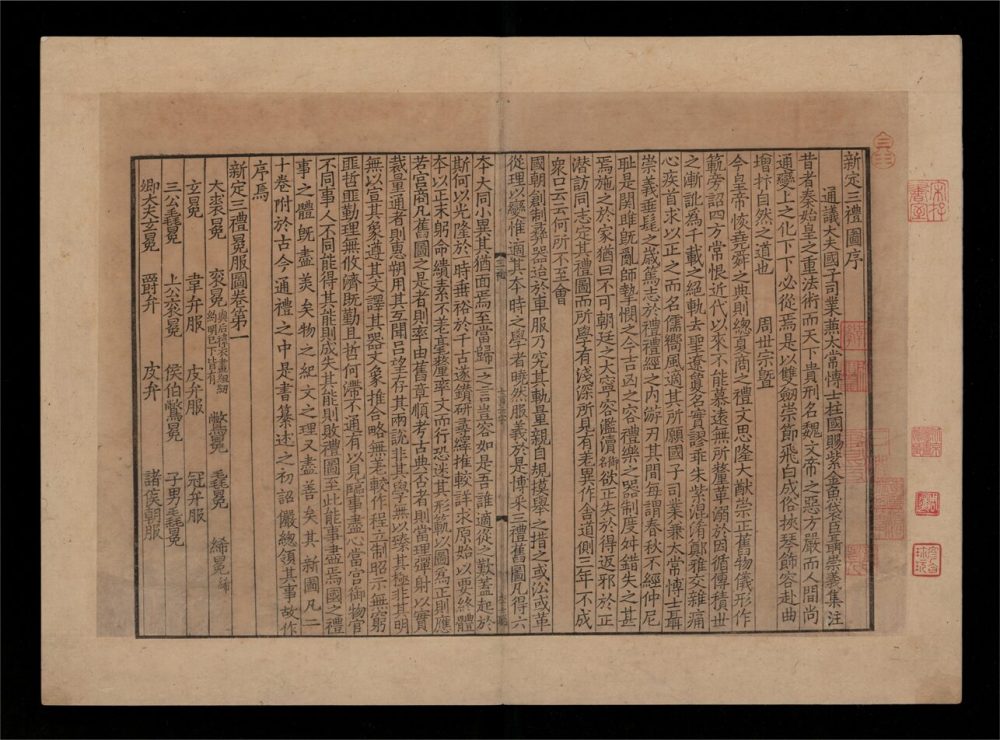 新定三禮圖序
通議大夫國子司業兼太常博士柱國賜紫金魚袋臣聶崇義集注
昔者秦始皇之重法術而天下貴刑名魏文帝之惡方嚴而人間尚
通變上之化下下必從焉是以雙劒崇節飛白成俗挾琴飾容赴曲
增抃自然之道也 周世宗曁
今皇帝恢堯舜之典則緫夏商之禮文思隆大猷崇正舊物儀形作
範旁詔四方常恨近代以來不能慕遠無所釐革溺於因循傳積世
之漸訛爲千載之絕軌去聖遼夐名實謬乖朱紫混淆鄭雅交雜痛
心疾首求以正之而名儒嚮風適其所願國子司業兼太常博士聶
崇義垂髦之歲篤志於禮禮經之內游刃其間每謂春秋不經仲尼
恥是關雎旣亂師摯憫之今吉凶之容禮樂之器制度舛錯失之甚
焉施之於家猶曰不可朝廷之大寧容濫瀆欲正失於得返邪於正
潜訪同志定其禮圖而所學有淺深所見有差異作舍道側三年不成
衆口云云何所不至會
國朝創制彝器迨於車服乃究其軌量親自規摸舉之措之或沿或革
從理以變惟適其本時之學者曉然服義於是博采三禮舊圖凡得六
本大同小異其猶面焉至當歸一之言豈容如是吾誰適從之歎蓋起於
斯何以光隆於一時垂裕於千古遂鑚研尋繹推較詳求原始以要終體
本以正末躬命繢素不差毫釐率文而行恐迷其形範以圖爲正則應
若宮商凡舊圖之是者則率由舊章順考古典否者則當理彈射以實
裁量通者則惠朔用其互聞呂望存其兩說非其學無以臻其極非其明
無以宣其象遵其文譯其器文象推合略無差較作程立制昭示無窮
匪哲匪勤理無攸濟旣勤且哲何滯不通有以見臨事盡心當官御物官
不同事人不同能得其能則成失其能則敗禮圖至此能事盡焉國之禮
事之體旣盡美矣物之紀文之理又盡善矣其新圖凡二
十卷附於古今通禮之中是書纂述之初詔儼緫領其事故作
序焉
新定三禮冕服圖卷第一
大裘冕 衮冕 鷩冕 毳冕 絺冕
玄冕 韋弁服 皮弁服 冠弁服
三公毳冕 上公衮冕 侯伯鷩冕 子男毳冕
卿大夫玄冕 爵弁 皮弁 諸侯朝服